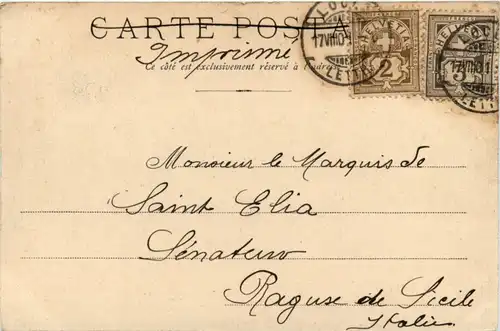 CARTE POSTA
Imprimé
Ce côté est exclusivement réservé à l'adresse
HELVETIA
2
3
17 VIII 0
17 VIII 01
LETTR
Monsieur le Marquis de
Saint Elia
Sénateur
Raguse de Sicile
Italie